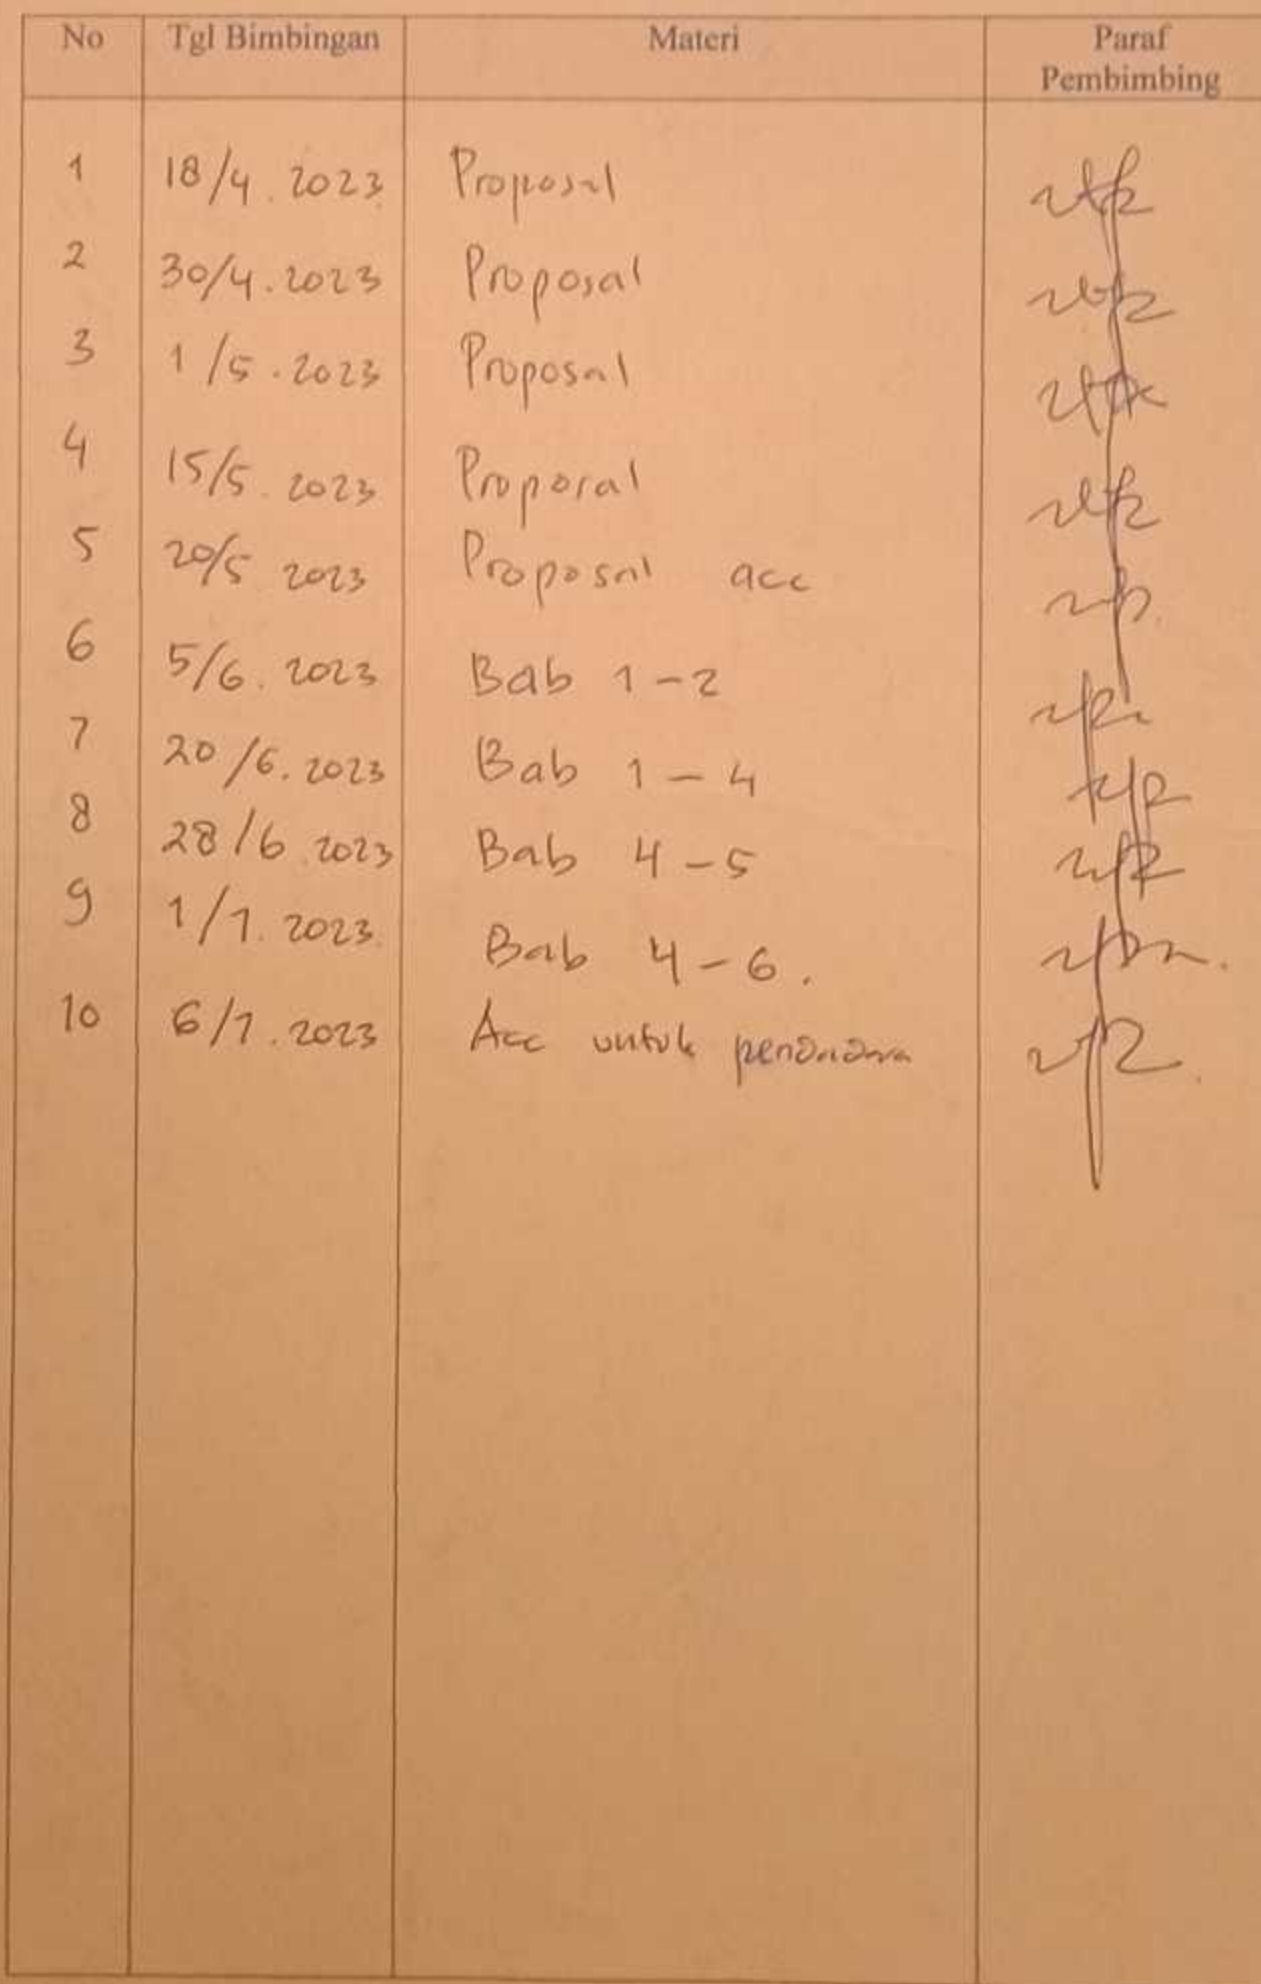 No Tgl Bimbingan Materi Paraf
Pembimbing
1 18/4.2023 Proposal
2 30/4.2023 Proposal
3 1/5.2023 Proposal
4 15/5.2023 Proposal
5 20/5 2023 Proposal acc
6 5/6.2023 Bab 1-2
7 20/6.2023 Bab 1-4
8 28/6 2023 Bab 4-5
9 1/7.2023 Bab 4-6.
10 6/7.2023 Acc untuk